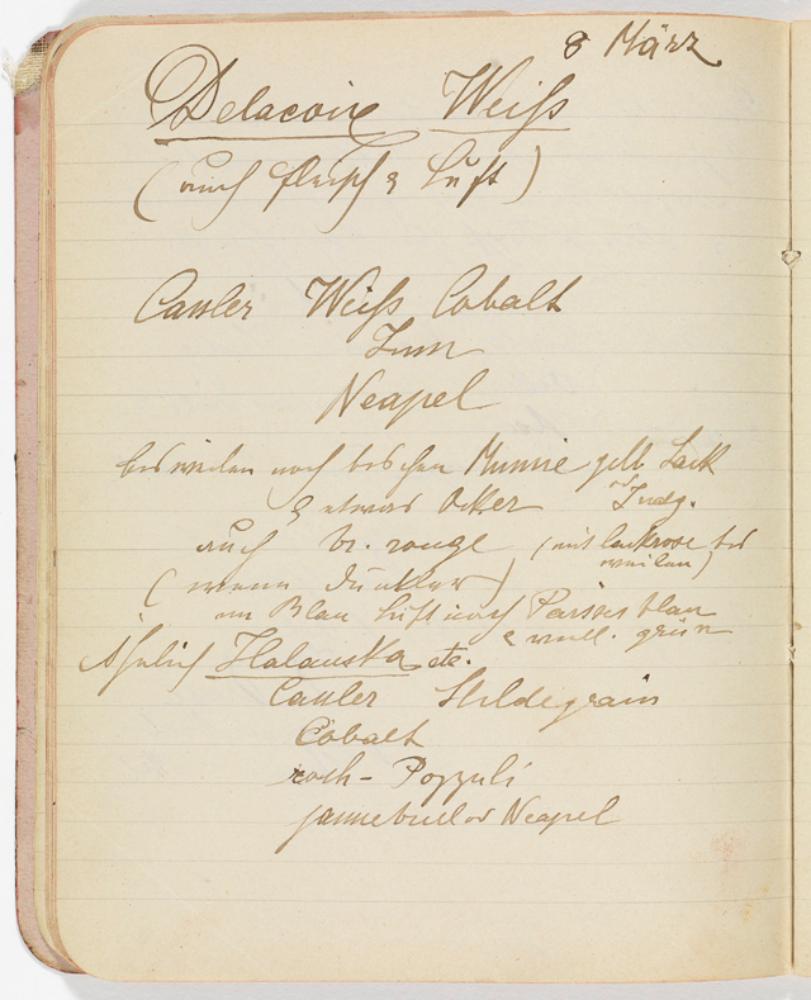 8 März
Delacoix Weiß
(auch fleisch & Luft)
Cassler Weiß Cobalt
Neapel
bisweilen noch bischen Mumie gelb Lack
& etwas Ocker Indg.
auch br. rouge (mit lackrose bis
weilen)
(wenn dunkler)
im Blau Luft noch Pariser blau
& grün
Ähnlich Halauska etc.
Cassler Stildegrain
Cobalt
roth - Pozzuli
jaunebrill od Neapel